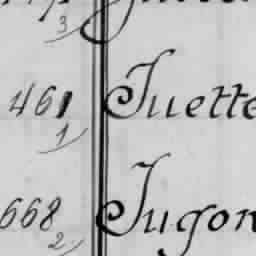 3
461 Juette
1
668 Jugon
2